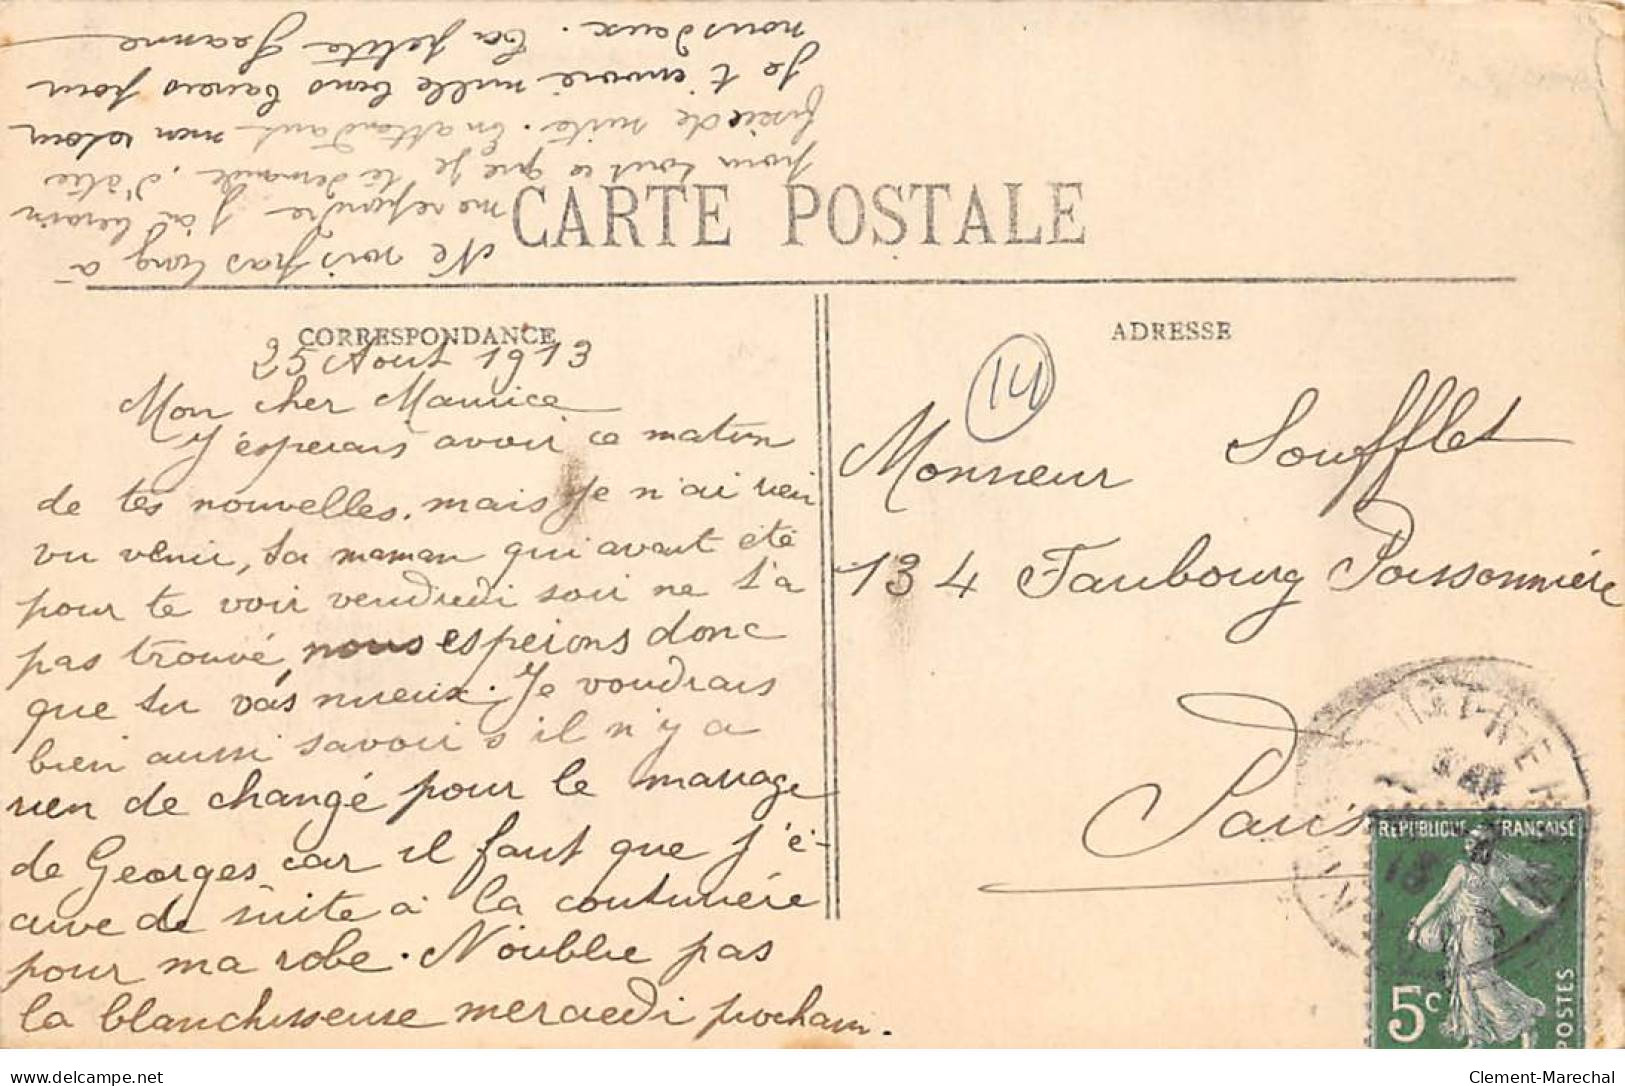 CARTE POSTALE
CORRESPONDANCE
25 Aout 1913
Mon cher Maurice
J'esperais avoir ce matin
de tes nouvelles. mais je n'ai rien
vu venir, ta maman qui avait été
pour te voir vendredi soir ne t'a
pas trouvé nous esperions donc
que tu vas mieux. Je voudrais
bien aussi savoir s'il n'y a
rien de changé pour le mariage
de Georges car il faut que j'é-
crive de suite à la couturière
pour ma robe. N'oublie pas
la blanchisseuse mercredi prochain.
Ne sois pas long à
me repondre j'ai besoin
pour tout ce que je te demande, d'être
fixée de suite. En attendant mon retour
Je t'envoie mille bons baisers pour
nous deux. Ta petite Jeanne
ADRESSE
14
Monsieur Soufflet
134 Faubourg Poissonnière
Paris
REPUBLIQUE FRANÇAISE
5c
POSTES
delcampe.net
Clement-Marechal